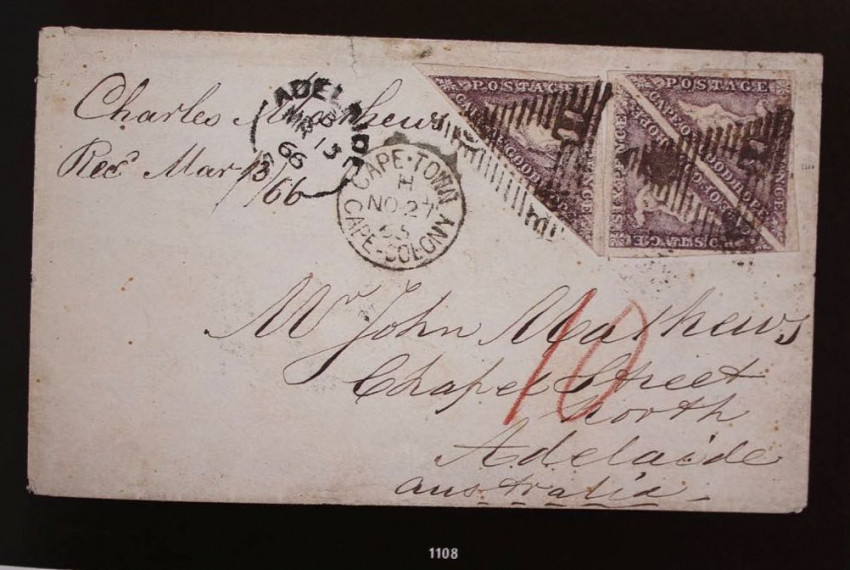 Charles Mathews
Recd Mar 13/66
ADEL
MR 13
66
CAPE-TOWN
H
NO 27
CAPE-COLONY
POSTAGE
CAPE OF GOOD HOPE
SIX PENCE
POSTAGE
CAPE OF GOOD HOPE
SIX PENCE
POSTAGE
Mr John Mathews
Chapel Street
North
Adelaide
australia
10
1108